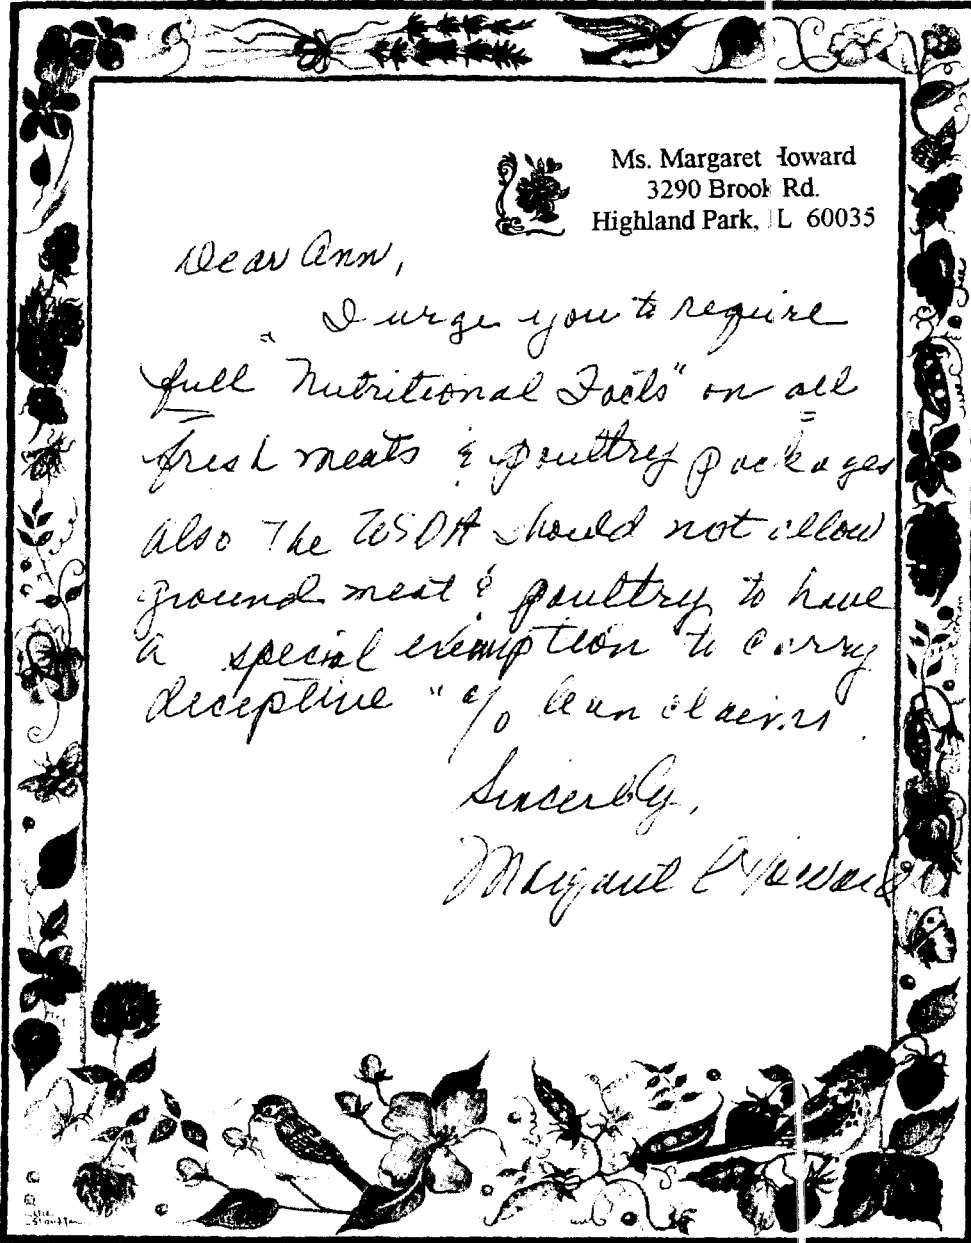 Ms. Margaret Howard
3290 Brook Rd.
Highland Park, IL 60035
Dear Ann,
I urge you to require
full "Nutritional Facts" on all
fresh meats & poultry packages
also The USDA should not allow
ground meat & poultry to have
a special exemption to carry
deceptive "% lean claims.
Sincerely,
Margaret Howard